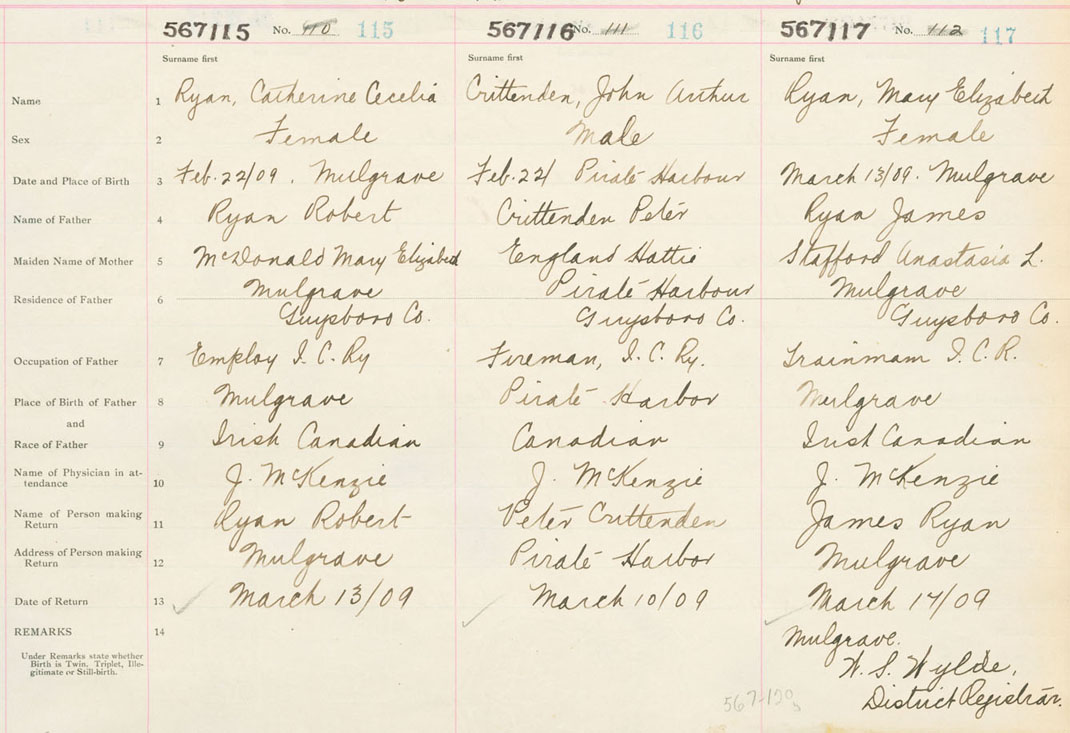 567115 No. 110 115 567116 No. 111 116 567117 No. 112 117
Surname first Surname first Surname first
Name 1 Ryan, Catherine Cecelia Crittenden, John Arthur Ryan, Mary Elizabeth
Sex 2 Female Male Female
Date and Place of Birth 3 Feb. 22/09. Mulgrave Feb. 22/ Pirate Harbour March 13/09. Mulgrave
Name of Father 4 Ryan Robert Crittenden Peter Ryan James
Maiden Name of Mother 5 McDonald Mary Elizabeth England Hattie Stafford Anastasia L.
Residence of Father 6 Mulgrave Pirate Harbour Mulgrave
Guysboro Co. Guysboro Co. Guysboro Co.
Occupation of Father 7 Employ I. C. Ry Fireman, I. C. Ry. Trainmam I. C. R.
Place of Birth of Father 8 Mulgrave Pirate Harbor Mulgrave
and
Race of Father 9 Irish Canadian Canadian Irish Canadian
Name of Physician in at-
tendance 10 J. McKenzie J. McKenzie J. McKenzie
Name of Person making
Return 11 Ryan Robert Peter Crittenden James Ryan
Address of Person making
Return 12 Mulgrave Pirate Harbor Mulgrave
Date of Return 13 March 13/09 March 10/09 March 17/09
REMARKS 14 Mulgrave.
Under Remarks state whether
Birth is Twin. Triplet, Ille-
gitimate or Still-birth.
W. S. Wylde,
District Registrar.